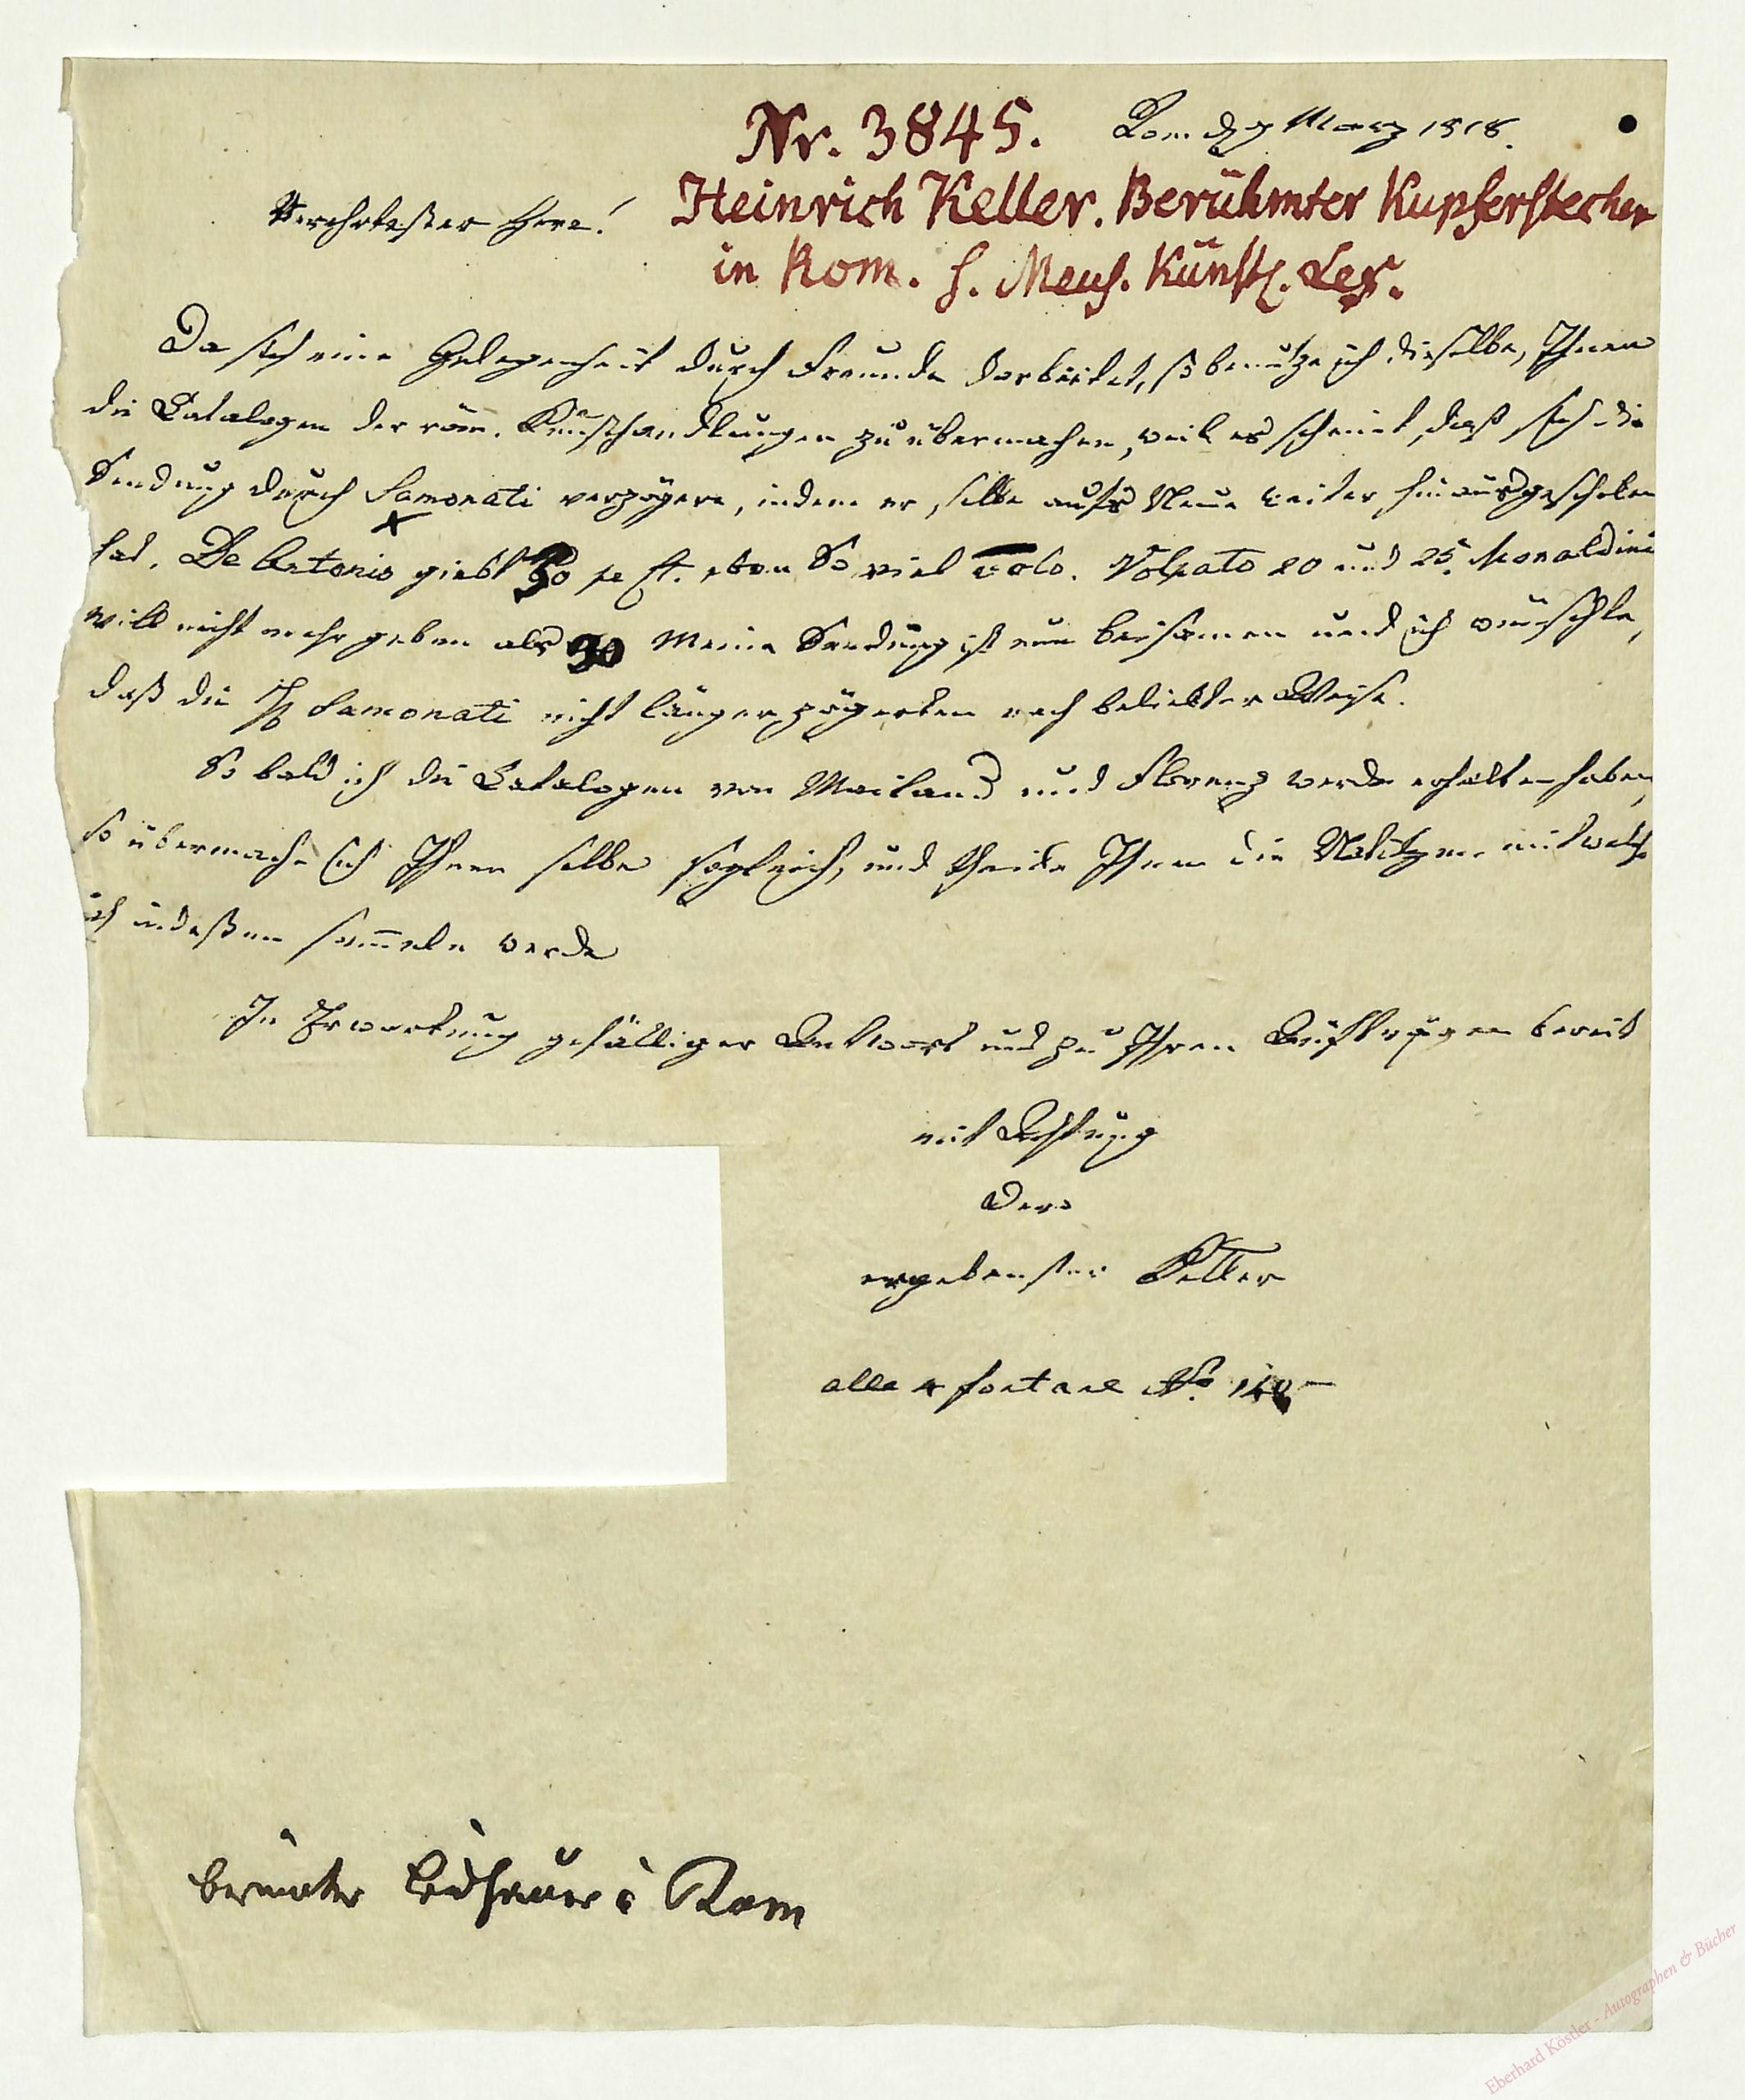 Nr. 3845. Rom d 7 Merz 1818.
Heinrich Keller. Berühmter Kupferstecher
Verehrtester Herr!
in Rom. s. Meus. Künstl. Lex.
Da sich eine Gelegenheit durch Freunde darbietet, so benutze ich dieselbe, Ihnen
die Catalogen der röm. Kunsthandlungen zu übermachen, weil es scheint, daß sich die
Sendung durch Samonati verzögere, indem er selbe aufs Neue weiter hinausgeschoben
hat. De Antonis giebt 30 pr Ct. eben So viel Volpato 20 und 25. Monaldini
will nicht mehr geben als 30 Meine Sendung ist nun beisamen und ich wünschte,
daß die HH Samonati nicht länger zögerten nach beliebter Weise.
So bald ich die Catalogen von Mailand und Florenz werde erhalten haben,
so übermache ich Ihnen selbe sogleich, und theile Ihnen die Notitzen mit welche
ich indeßen sammeln werde
In Erwartung gefälliger Antwort und zu Ihren Aufträgen bereit
mit Achtung
Dero
ergebenster Keller
alle 4 fontane No.
berümter Bildhauer i Rom
Eberhard Köstler - Autographen & Bücher